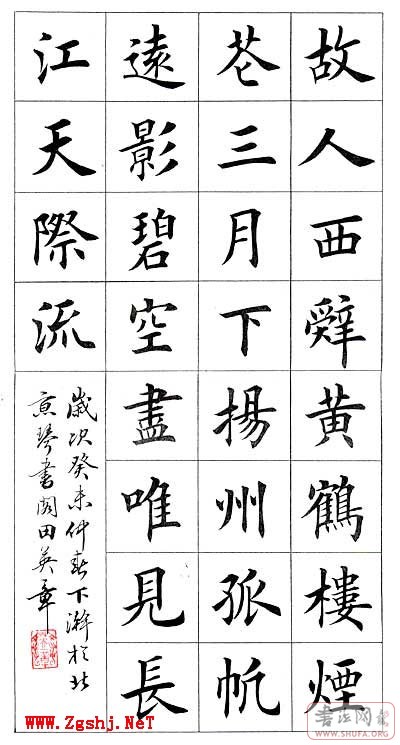 故人西辭黄鶴樓煙
花三月下揚州孤帆
遠影碧空盡唯見長
江天際流
歲次癸未仲春下澣於北
京琴書閣田英章
www.Zgshj.NeT
WWW.SHUFA.ORG